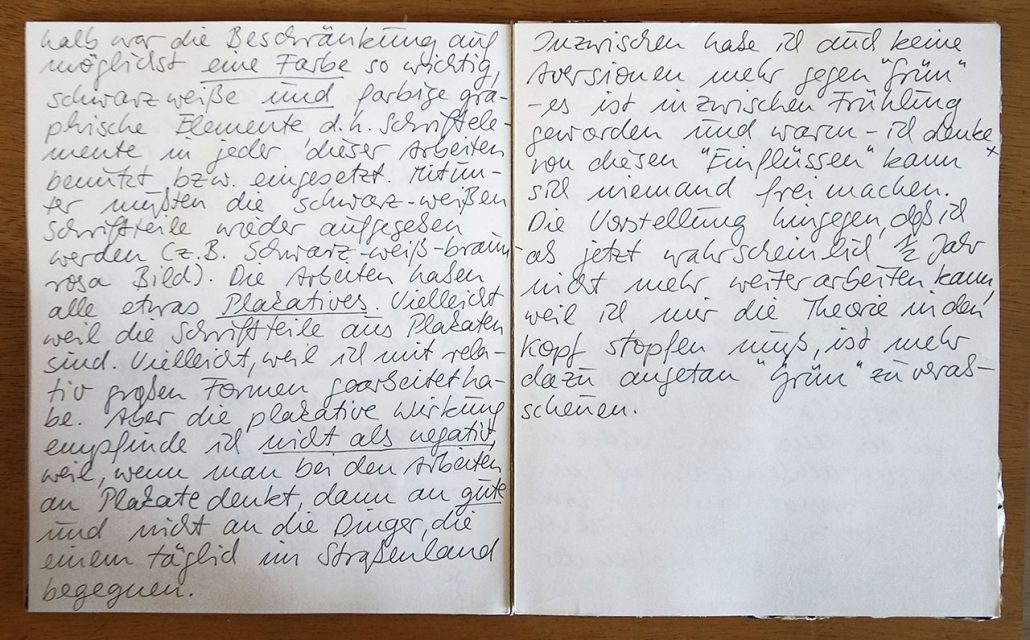 halb war die Beschränkung auf
möglichst eine Farbe so wichtig,
schwarzweiße und farbige gra-
phische Elemente d.h. Schriftele-
mente in jeder dieser Arbeiten
benutzt bzw. eingesetzt. Mitun-
ter mußten die schwarz-weißen
Schriftteile wieder aufgegeben
werden (z.B. Schwarz-weiß-braun-
rosa Bild). Die Arbeiten haben
alle etwas Plakatives. Vielleicht
weil die Schriftteile aus Plakaten
sind. Vielleicht, weil ich mit rela-
tiv großen Formen gearbeitet ha-
be. Aber die plakative Wirkung
empfinde ich nicht als negativ,
weil, wenn man bei den Arbeiten
an Plakate denkt, dann an gute
und nicht an die Dinger, die
einem täglich im Straßenland
begegnen.
Inzwischen habe ich auch keine
Aversionen mehr gegen "Grün"
- es ist inzwischen Frühling
geworden und warm - ich denke,
von diesen "Einflüssen" kann
sich niemand freimachen.
Die Vorstellung hingegen, daß ich
ab jetzt wahrscheinlich 1/2 Jahr
nicht mehr weiterarbeiten kann,
weil ich mir die Theorie in den
Kopf stopfen muß, ist mehr
dazu angetan "Grün" zu verab-
scheuen.